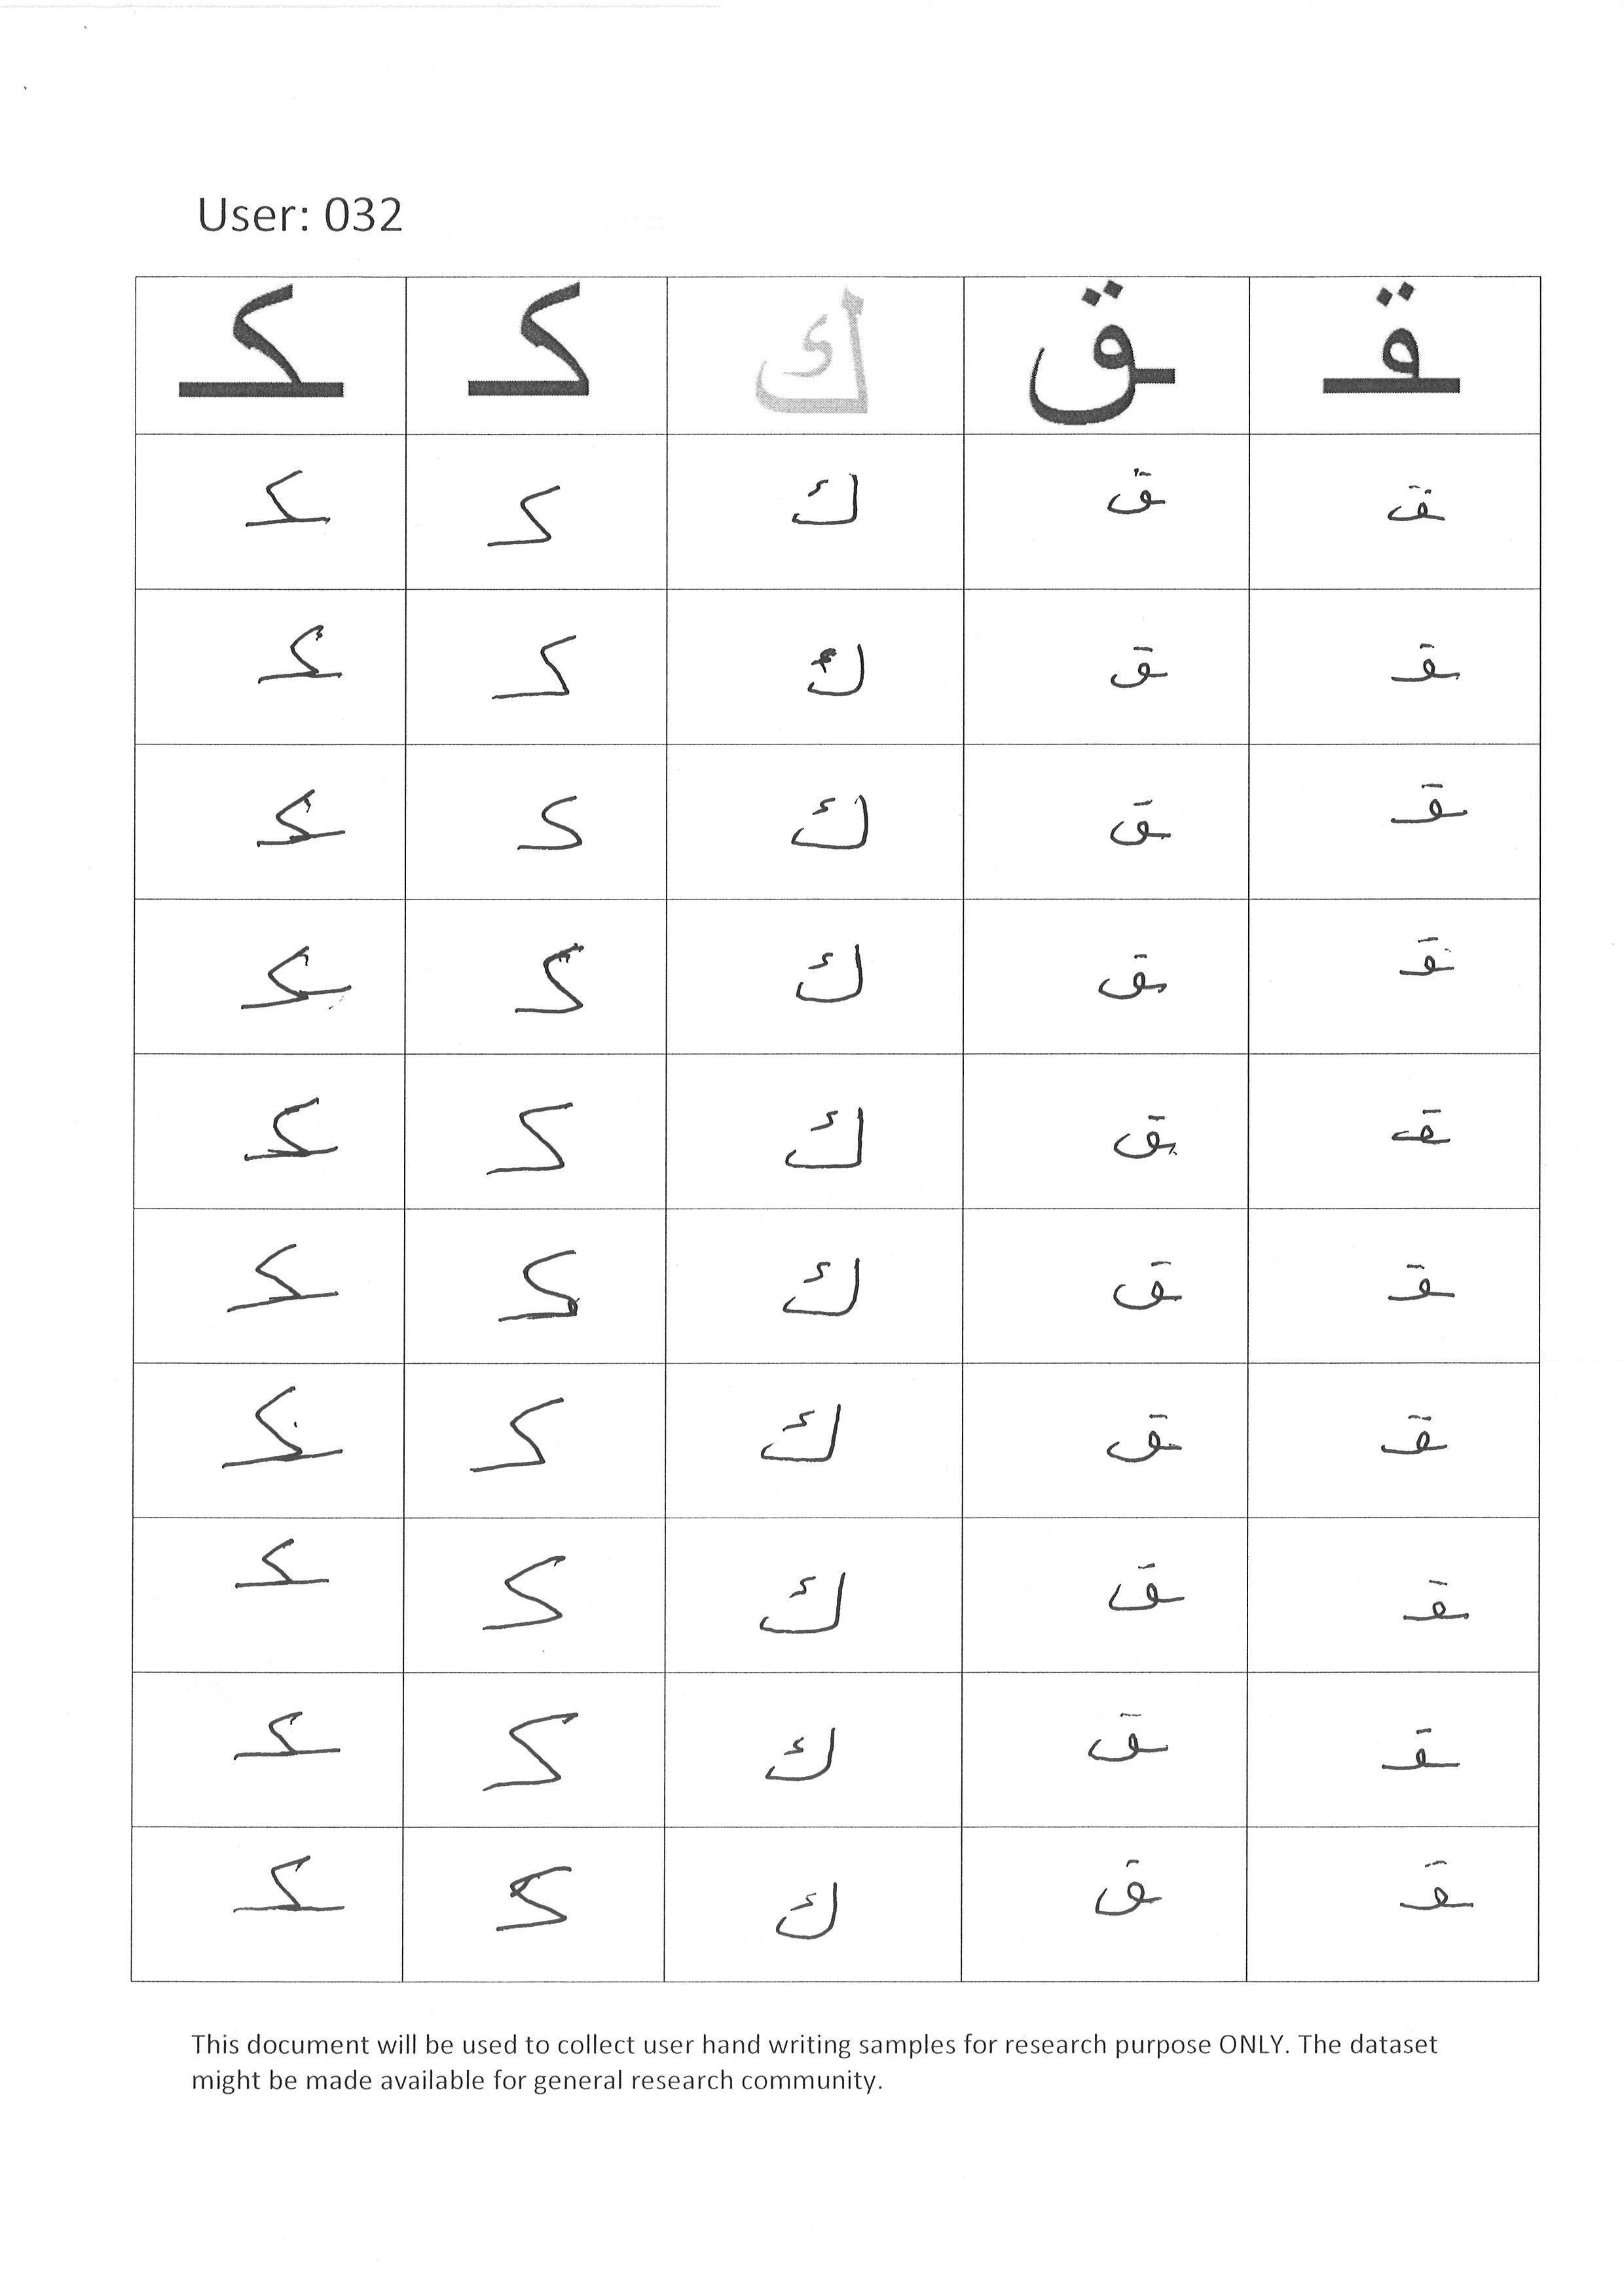 User: 032
ـكـ كـ ك ـق ـقـ
ـكـ كـ ك ـق ـقـ
ـكـ كـ ك ـق ـقـ
ـكـ كـ ك ـق ـقـ
ـكـ كـ ك ـق ـقـ
ـكـ كـ ك ـق ـقـ
ـكـ كـ ك ـق ـقـ
ـكـ كـ ك ـق ـقـ
ـكـ كـ ك ـق ـقـ
ـكـ كـ ك ـق ـقـ
ـكـ كـ ك ـق ـقـ
This document will be used to collect user hand writing samples for research purpose ONLY. The dataset
might be made available for general research community.